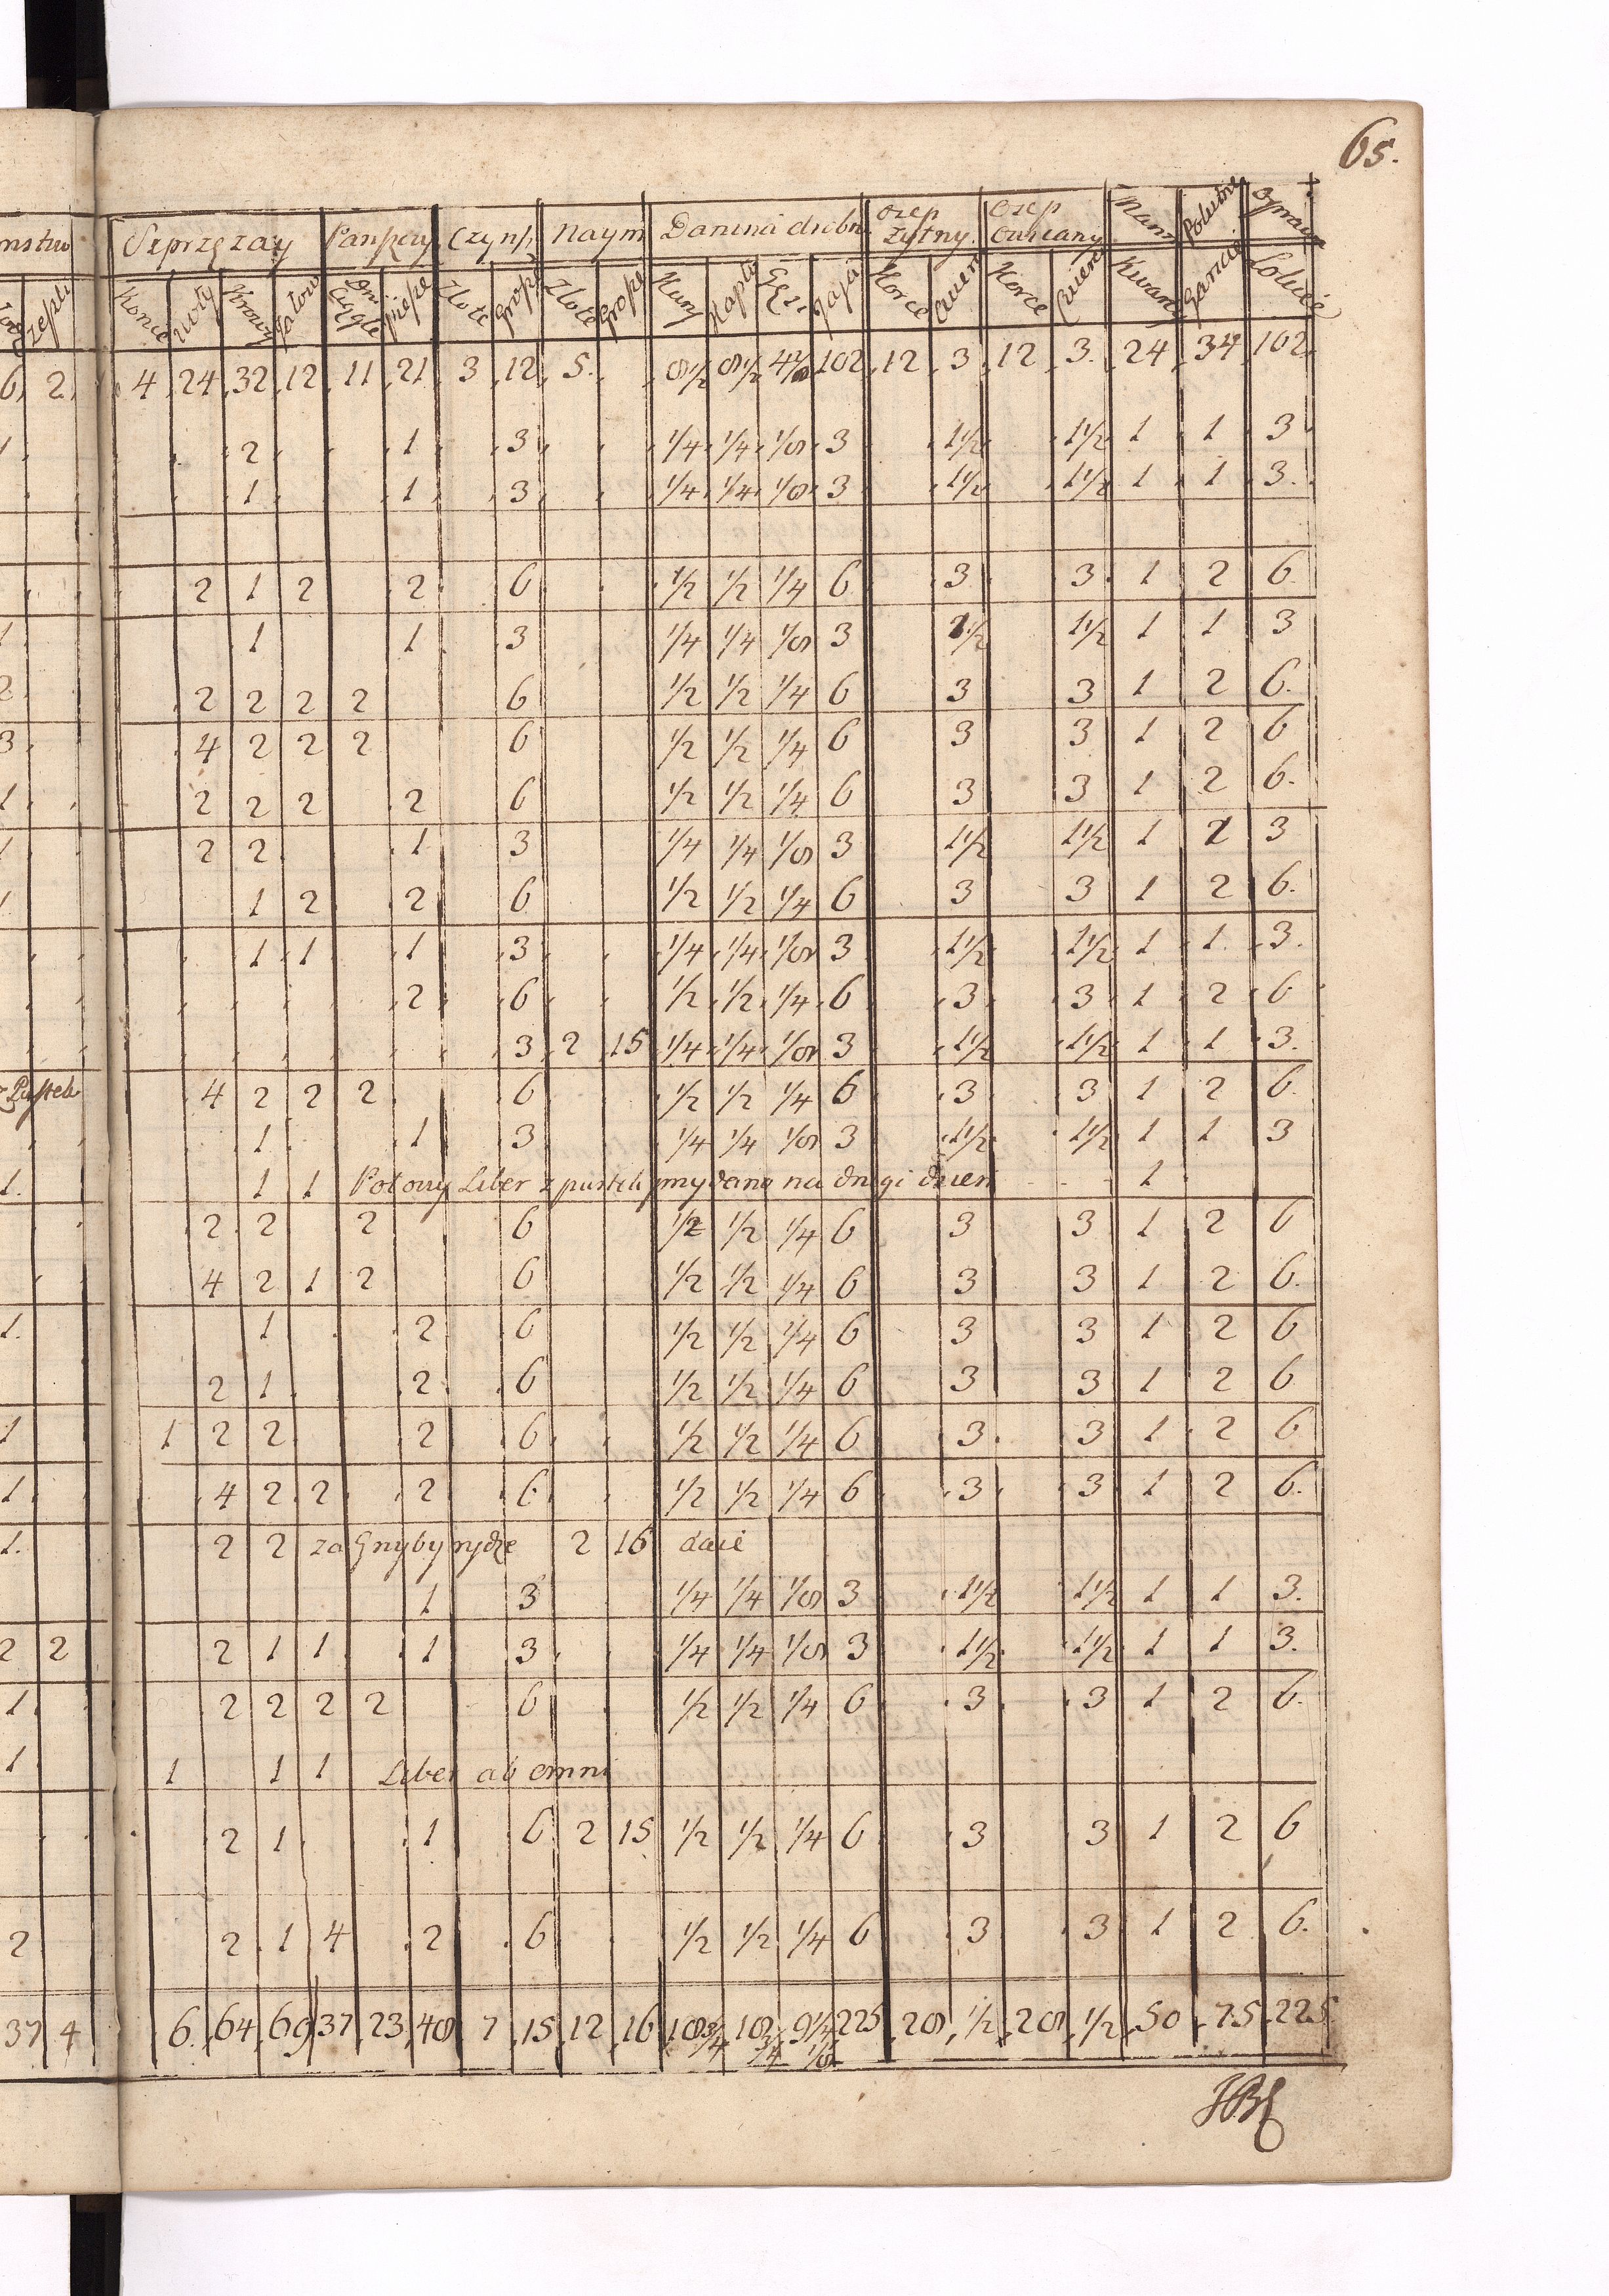 65.
Szprzęzay Panszczy Czynsz Naym Danina drobn Ozep Zytny Ozep Owsiany
Konie woły Krowy Jałow Dni Ciągłe piesze Złote Grosze Złote Grosze Kury Kapł Gęsi Jaja Korce Cwierc Korce Cwierc Garnce Łokcie
6 2 4 24 32 12 11 21 3 12 5. 8 1/2 8 1/2 4 1/4 102 12 3 12 3. 24 34 102
2 1 3 1/4 1/4 1/8 3 1 1/2 1 1/2 1 1 3
1 1 3 1/4 1/4 1/8 3 1 1/2 1 1/2 1 1 3.
2 1 2 2 6 1/2 1/2 1/4 6 3 3 1 2 6.
1 1 1 3 1/4 1/4 1/8 3 1 1/2 1 1/2 1 1 3
2 2 2 2 2 6 1/2 1/2 1/4 6 3 3 1 2 6.
3 4 2 2 2 6 1/2 1/2 1/4 6 3 3 1 2 6
1 2 2 2 2 6 1/2 1/2 1/4 6 3 3 1 2 6.
1 2 2 1 3 1/4 1/4 1/8 3 1 1/2 1 1/2 1 1 3
1 1 2 2 6 1/2 1/2 1/4 6 3 3 1 2 6.
1 1 1 3 1/4 1/4 1/8 3 1 1/2 1 1/2 1 1 3.
2 6 1/2 1/2 1/4 6 3 3 1 2 6
3 2 15 1/4 1/4 1/8 3 1 1/2 1 1/2 1 1 3.
4 2 2 2 6 1/2 1/2 1/4 6 3 3 1 2 6.
1 1 3 1/4 1/4 1/8 3 1 1/2 1 1/2 1 1 3
1. 1 1 Połowy Liber z pustek przydana na drugi dzień 1
2 2 2 6 1/2 1/2 1/4 6 3 3 1 2 6
4 2 1 2 6 1/2 1/2 1/4 6 3 3 1 2 6.
1. 1 2 6 1/2 1/2 1/4 6 3 3 1 2 6
2 1 2 6 1/2 1/2 1/4 6 3 3 1 2 6
1 1 2 2 2 6 1/2 1/2 1/4 6 3 3 1 2 6
1 4 2 2 2 6 1/2 1/2 1/4 6 3 3 1 2 6.
1. 2 2 za Grzyby rydze 2 16 daie
1 3 1/4 1/4 1/8 3 1 1/2 1 1/2 1 1 3.
2 2 2 1 1 1 3 1/4 1/4 1/8 3 1 1/2 1 1/2 1 1 3.
1 2 2 2 2 6 1/2 1/2 1/4 6 3 3 1 2 6.
1 1 1 1 Liber ab omni
2 1 1 6 2 15 1/2 1/2 1/4 6 3 3 1 2 6
2 2 1 4 2 6 1/2 1/2 1/4 6 3 3 1 2 6.
37 4 6 64 69 37 23 48 7 15 12 16 18 3/4 18 3/4 9 1/4 1/8 225 28 1/2 28 1/2 50 75 225